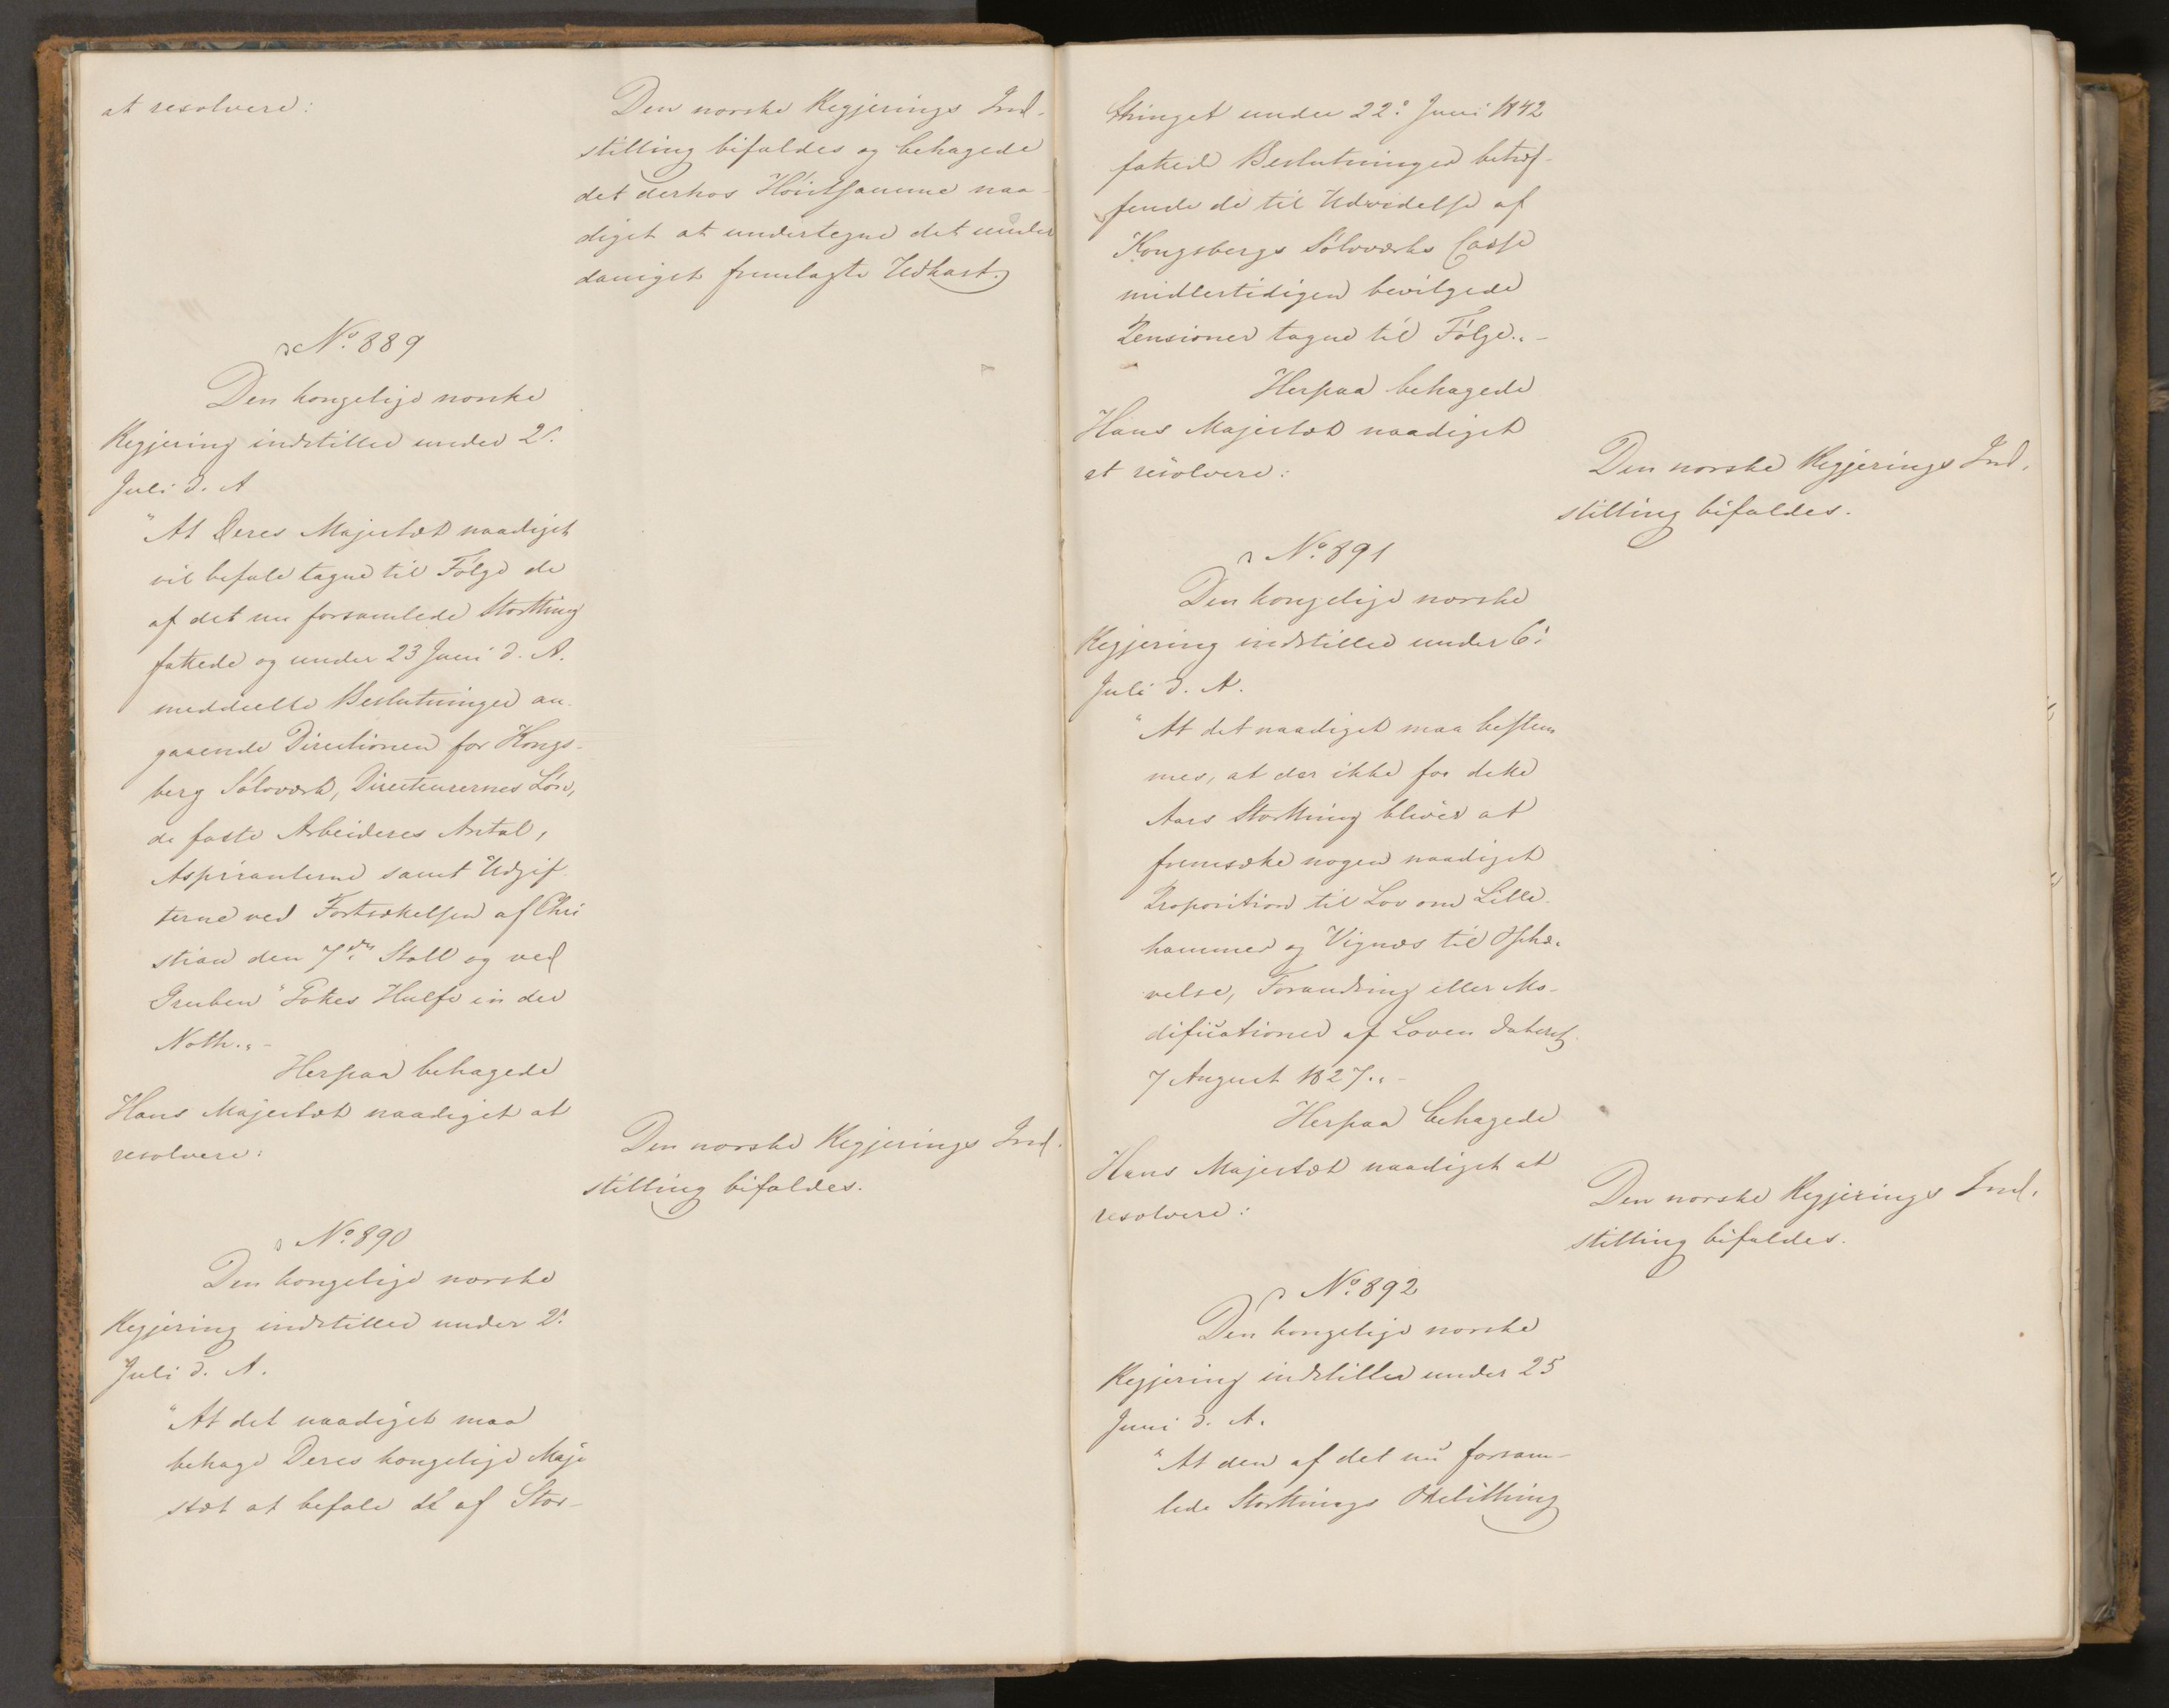 at resolvere:
Den norske Regjerings Ind-
stilling bifaldes og behagede
det derhos Høistsamme naa-
digst at undertegne det under
danigst fremlagte Udkast.
No. 889
Den kongelige norske
Regjering indstiller under 2.
Juli d. A
"At Deres Majestæt naadigst
vil befale tagne til Følge de
af det nu forsamlede Storthing
fattede og under 23 Juni d. A.
meddeelte Beslutninger an-
gaaende Directionen for Kongs-
berg Sølvværk, Directeurernes Løn,
de faste Arbeideres Antal,
Aspiranterne samt Udgif-
terne ved Fortsættelsen af Chri
stian den 7des Stoll og ved
Gruben "Gottes Hülfe in der
Noth.„-
Herpaa behagede
Hans Majestæt naadigst at
resolvere:
Den norske Regjerings Ind-
stilling bifaldes.
No. 890
Den kongelige norske
Regjering indstiller under 2.
Juli d. A.
"At det naadigst maa
behage Deres kongelige Maje
stæt at befale de af Stor-
thinget under 22. Juni 1842
fattede Beslutninger betræf-
fende de til Udvidelse af
Kongsbergs Sølvværks Casse
midlertidigen bevilgede
Pensioner tagne til Følge.„-
Herpaa behagede
Hans Majestæt naadigst
at resolvere:
Den norske Regjerings Ind-
stilling bifaldes.
No. 891
Den kongelige norske
Regjering indstiller under 6.
Juli d. A.
"At det naadigst maa bestem
mes, at der ikke for dette
Aars Storthing bliver at
fremsætte nogen naadigst
Proposition til Lov om Lille-
hammer og Vignæs til Ophæ-
velse, Forandring eller Mo-
dificationer af Loven dateret
7 August 1827.„-
Herpaa behagede
Hans Majestæt naadigst at
resolvere:
Den norske Regjerings Ind-
stilling bifaldes.
No. 892
Den kongelige norske
Regjering indstiller under 25
Juni d. A.
"At den af det nu forsam-
lede Storthings Odelsthing